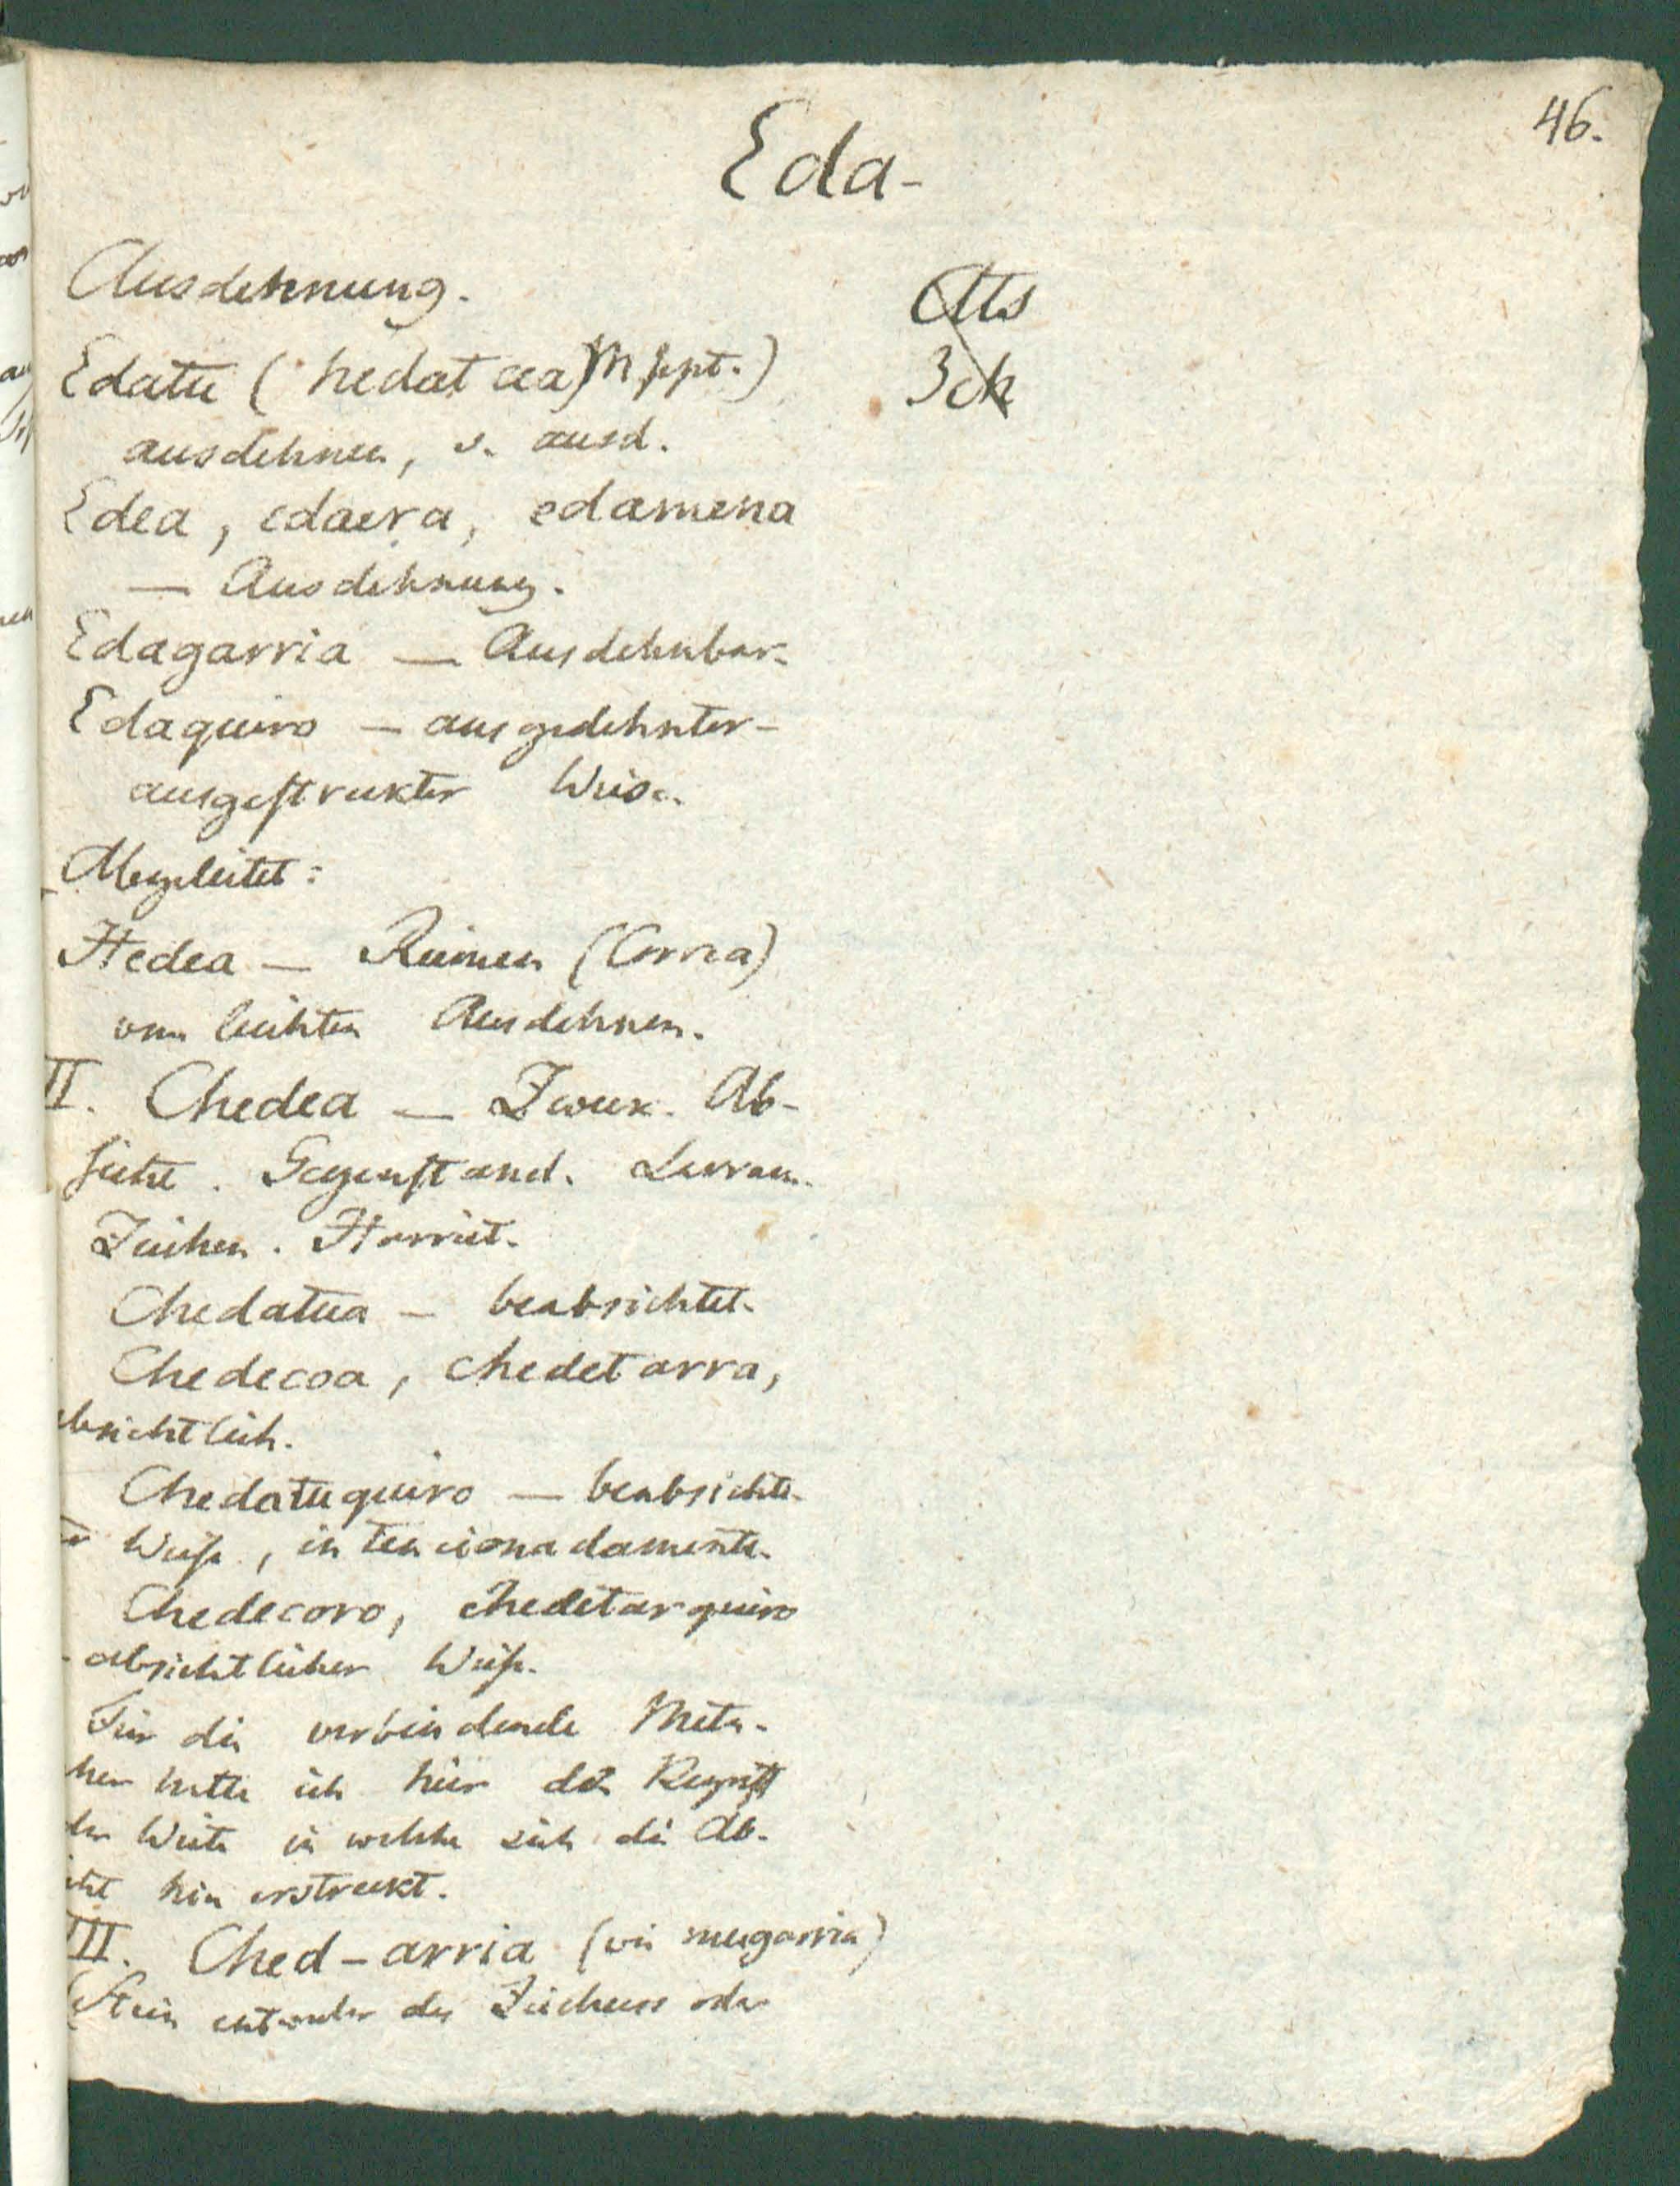 46.
Eda-
Ausdehnung.
Edatu (hedatcea Mspt.)
ausdehnen, s. ausd.
Edea, edaera, edamena
— Ausdehnung.
Edagarria — Ausdehnbar-
Edaquiro — ausgedehnter-
ausgestrekter Weise.
Abgeleitet:
Hedea — Riemen (Correa)
vom leichten Ausdehnen.
II. Chedea — Zwek. Ab-
sicht. Gegenstand. Larram.
Zeichen. Harriet.
Chedatua — beabsichtet.
Chedecoa, chedetarra,
absichtlich.
Chedatuquiro — beabsichte-
ter Weise, intencionadamente.
Chedecoro, chedetarquiro
- absichtlicher Weise.
Für die verbindende Meta-
pher halte ich hier den Begriff
der Weite in welche sich die Ab-
sicht hin erstreckt.
III. Ched-arria (wie mugarria)
Stein entweder des Zeichens oder
Ats
3ck